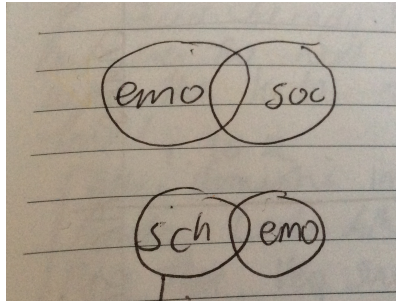 emo soc
sch emo